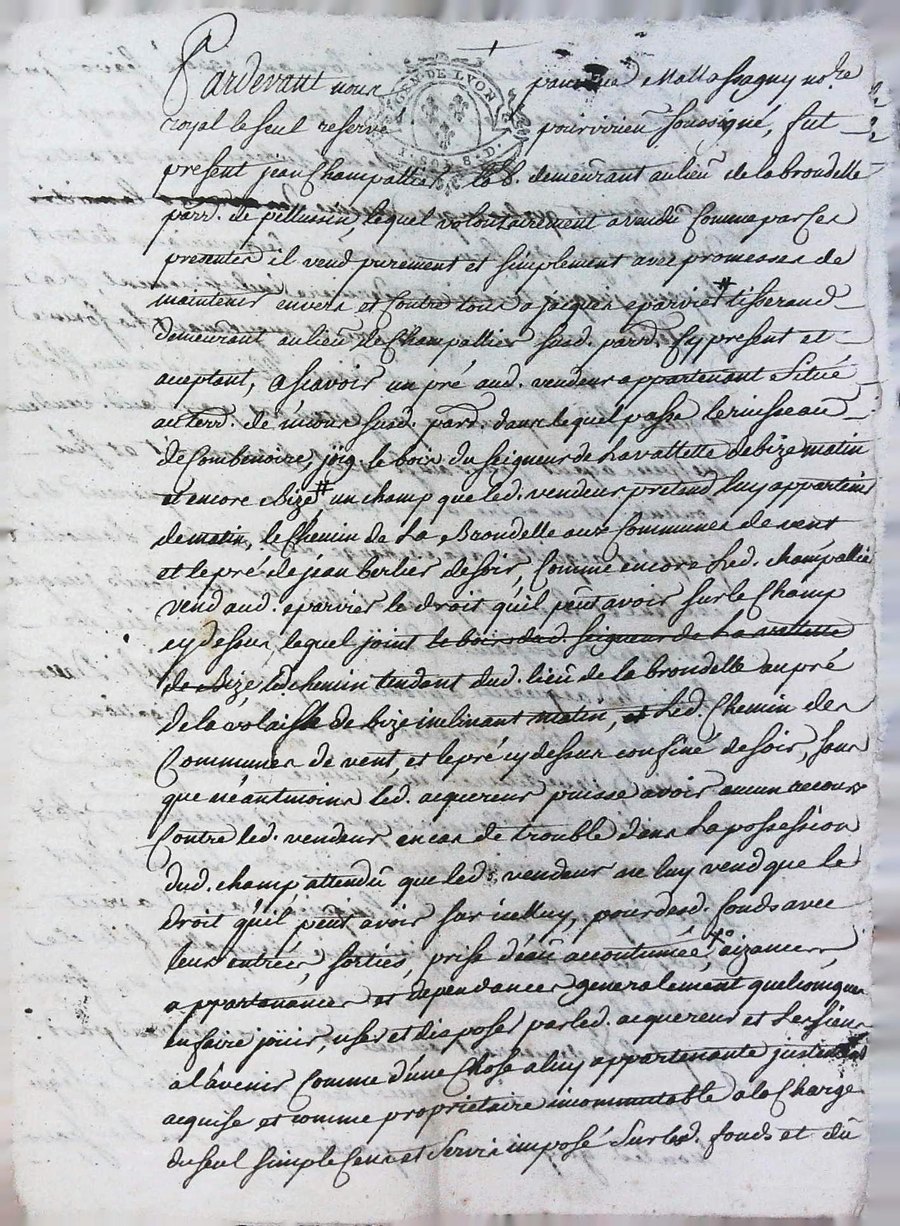 Pardevant nous Mattassagny no.re
GEN. DE LYON
1. SOL 8. D.
royal le seul reservé pour virieu soussigné, fut
present jean Champallier lab. demeurant au lieu de la brondelle
parr. de pellussin, lequel volontairement a vendu Comme par Ces
presentes il vend purement et simplement avec promesses de
maintenir envers et Contre tous a jacques eparvier # tisserand
demeurant au lieu de Champallier susd. parr. Cy present et
aceptant, a sçavoir un pré aud. vendeur appartenant Situé
au terr. de susd. parr. dans lequel passe le ruisseau
de Combenoire, joig. le bois du seigneur de Lavallette de bize matin
et encore bize # un champ que led. vendeur pretend luy appartenir
de matin, le Chemin de La Brondelle aux Communes de vent
et le pré de jean berlier de soir, Comme encore Led. champallier
vend aud. eparvier le droit qu'il peut avoir sur le Champ
cy dessus, lequel joint le bois dud. seigneur de Lavallette
de bize led. chemin tendant dud. lieu de la brondelle au pré
de la de bize inclinant matin, et Led. Chemin des
Communes de vent, et le pré cy dessus confiné de soir, sans
que néantmoins led. acquereur puisse avoir aucun recours
Contre led. vendeur en cas de trouble dans La possession
dud. champ attendu que led. vendeur ne luy vend que le
droit qu'il peut avoir sur icelluy, pour desd. fonds avec
leurs entrées, sorties, prise d'eau accoutumée, aizances
appartenances et dependances generalement quelconques
en faire jouir, user et disposer par led. acquereur et Les siens
a l'avenir Comme d'une Chose a luy appartenante justement
acquise et comme proprietaire incommutable a la Charge
du seul simple Cens et Servis imposé Sur led. fonds et dû